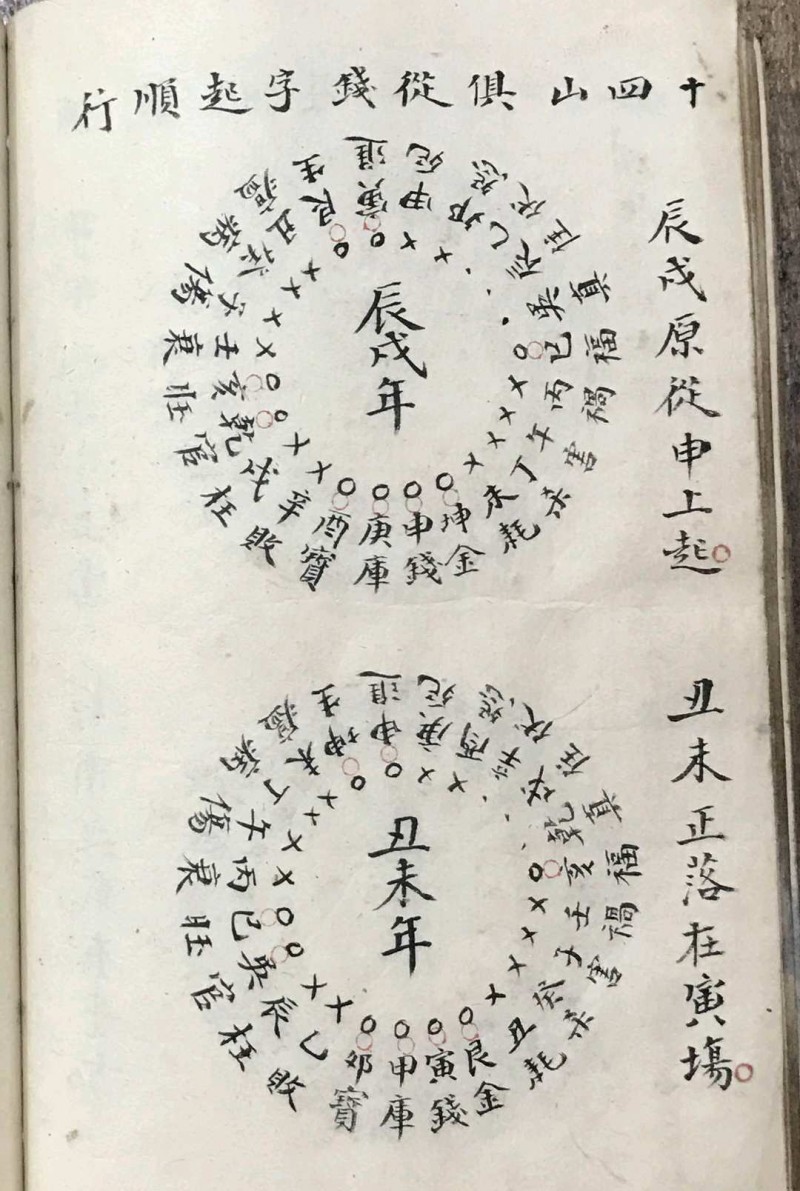 十四山俱從錢字起順行
辰戌原從申上起
辰戌年
申庚酉辛戌乾亥壬子癸丑艮寅甲卯乙辰巽巳丙午丁未坤
錢庫寶敗狂官旺衰傷生進死怨真福禍害哭耗金
丑未正落在寅塲
丑未年
寅甲卯乙辰巽巳丙午丁未坤申庚酉辛戌乾亥壬子癸丑艮
錢庫寶敗狂官旺衰傷生進死怨真福禍害哭耗金